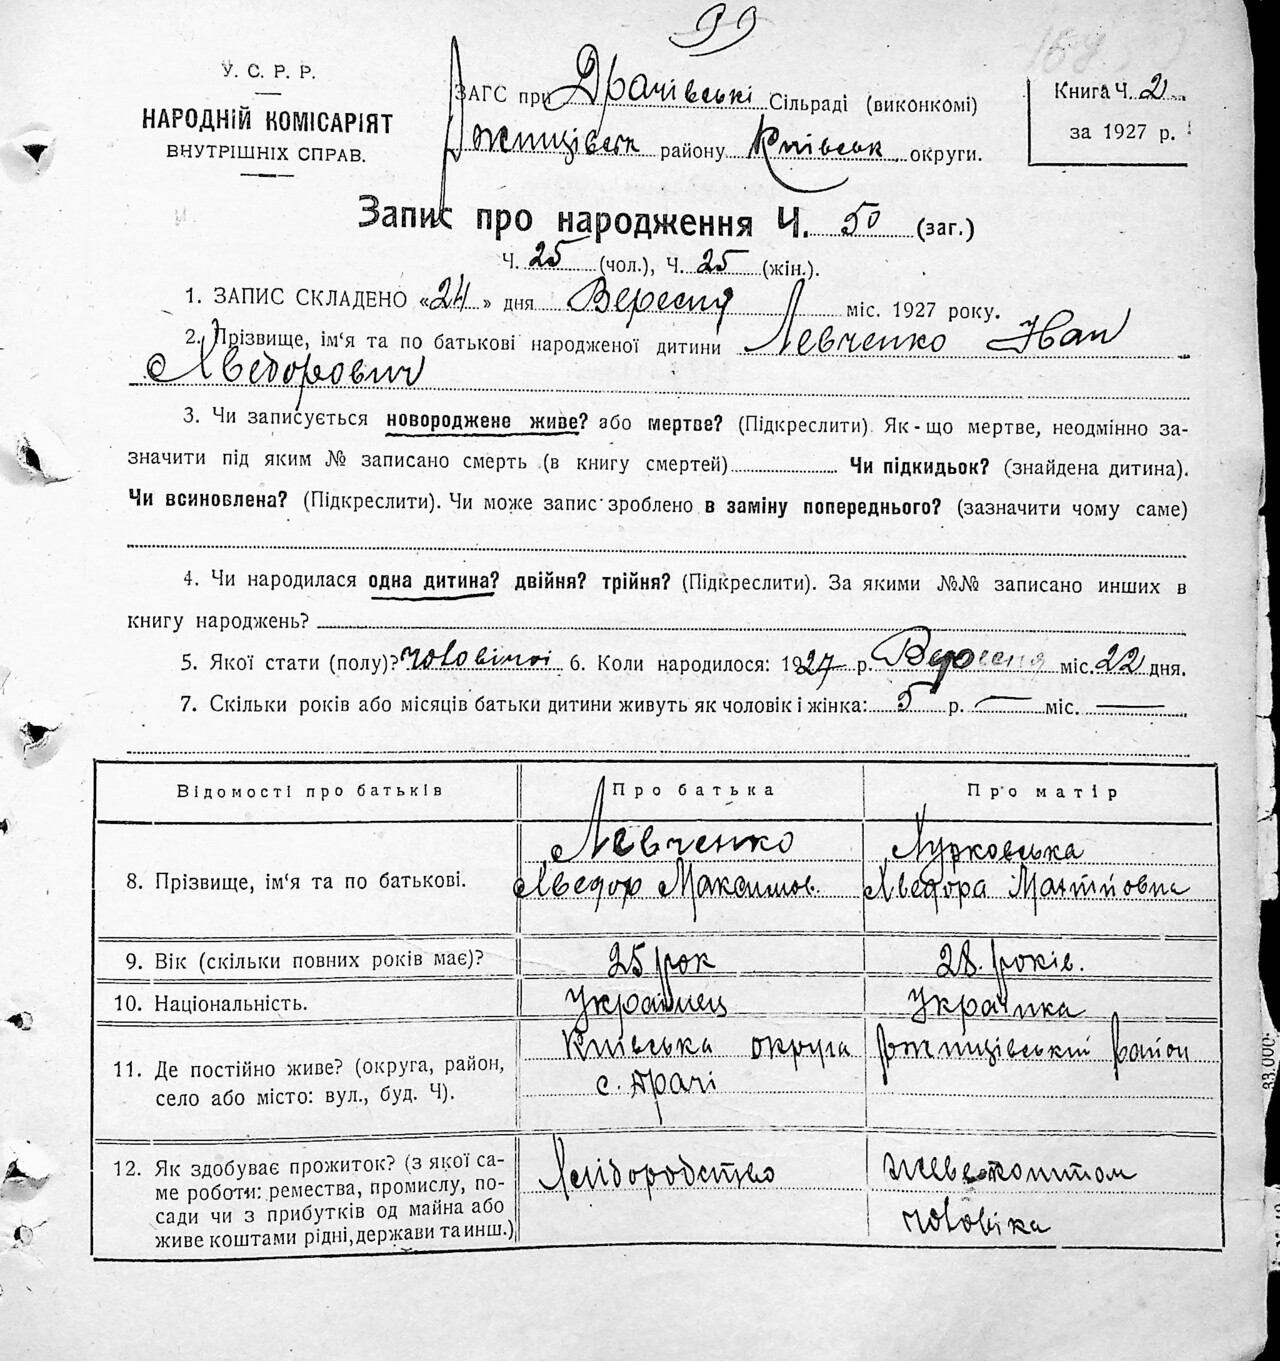 99
У. С. Р. Р.
НАРОДНІЙ КОМІСАРІЯТ
ВНУТРІШНІХ СПРАВ.
ЗАГС при Драчівські Сільраді (виконкомі)
Ржищівськ району Київськ округи.
Книга Ч. 2
за 1927 р.
Запис про народження Ч. 50 (заг.)
Ч. 25 (чол.), Ч. 25 (жін.).
1. ЗАПИС СКЛАДЕНО «24» дня Вересня міс. 1927 року.
2. Прізвище, ім'я та по батькові народженої дитини Левченко Иван
Хведорович
3. Чи записується новороджене живе? або мертве? (Підкреслити) Як-що мертве, неодмінно за-
значити під яким № записано смерть (в книгу смертей) Чи підкидьок? (знайдена дитина).
Чи всиновлена? (Підкреслити). Чи може запис зроблено в заміну попереднього? (зазначити чому саме)
4. Чи народилася одна дитина? двійня? трійня? (Підкреслити). За якими №№ записано инших в
книгу народжень?
5. Якої стати (полу)? чоловічої 6. Коли народилося: 1927 р. Вересня міс. 22 дня.
7. Скільки років або місяців батьки дитини живуть як чоловік і жінка: 5 р. — міс. —
Відомості про батьків
Про батька
Про матір
8. Прізвище, ім'я та по батькові.
Левченко
Хведор Максимов.
Хведора
9. Вік (скільки повних років має)?
25 рок
28. років.
10. Національність.
Українец
Українка
11. Де постійно живе? (округа, район,
село або місто: вул., буд. Ч).
Київська округа Ржищівський район
с. Драчі
12. Як здобуває прожиток? (з якої са-
ме роботи: ремества, промислу, по-
сади чи з прибутків од майна або
живе коштами рідні, держави та инш.)
Хліборобство
живе коштом
чоловіка
33.000